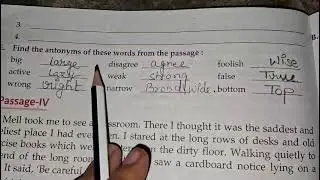 3.
4.
Find the antonyms of these words from the passage :
big large disagree agree foolish wise
active lazy weak strong false True
wrong Wright narrow Broadwide, bottom Top
Passage-IV
Mell took me to see a classroom. There I thought it was the saddest and
liest place I had ever seen. I stared at the long rows of desks and old
cise books which were on the dirty floor. Walking quietly to
end of the long room saw a cardboard notice lying on a
It said, 'Be careful
B.